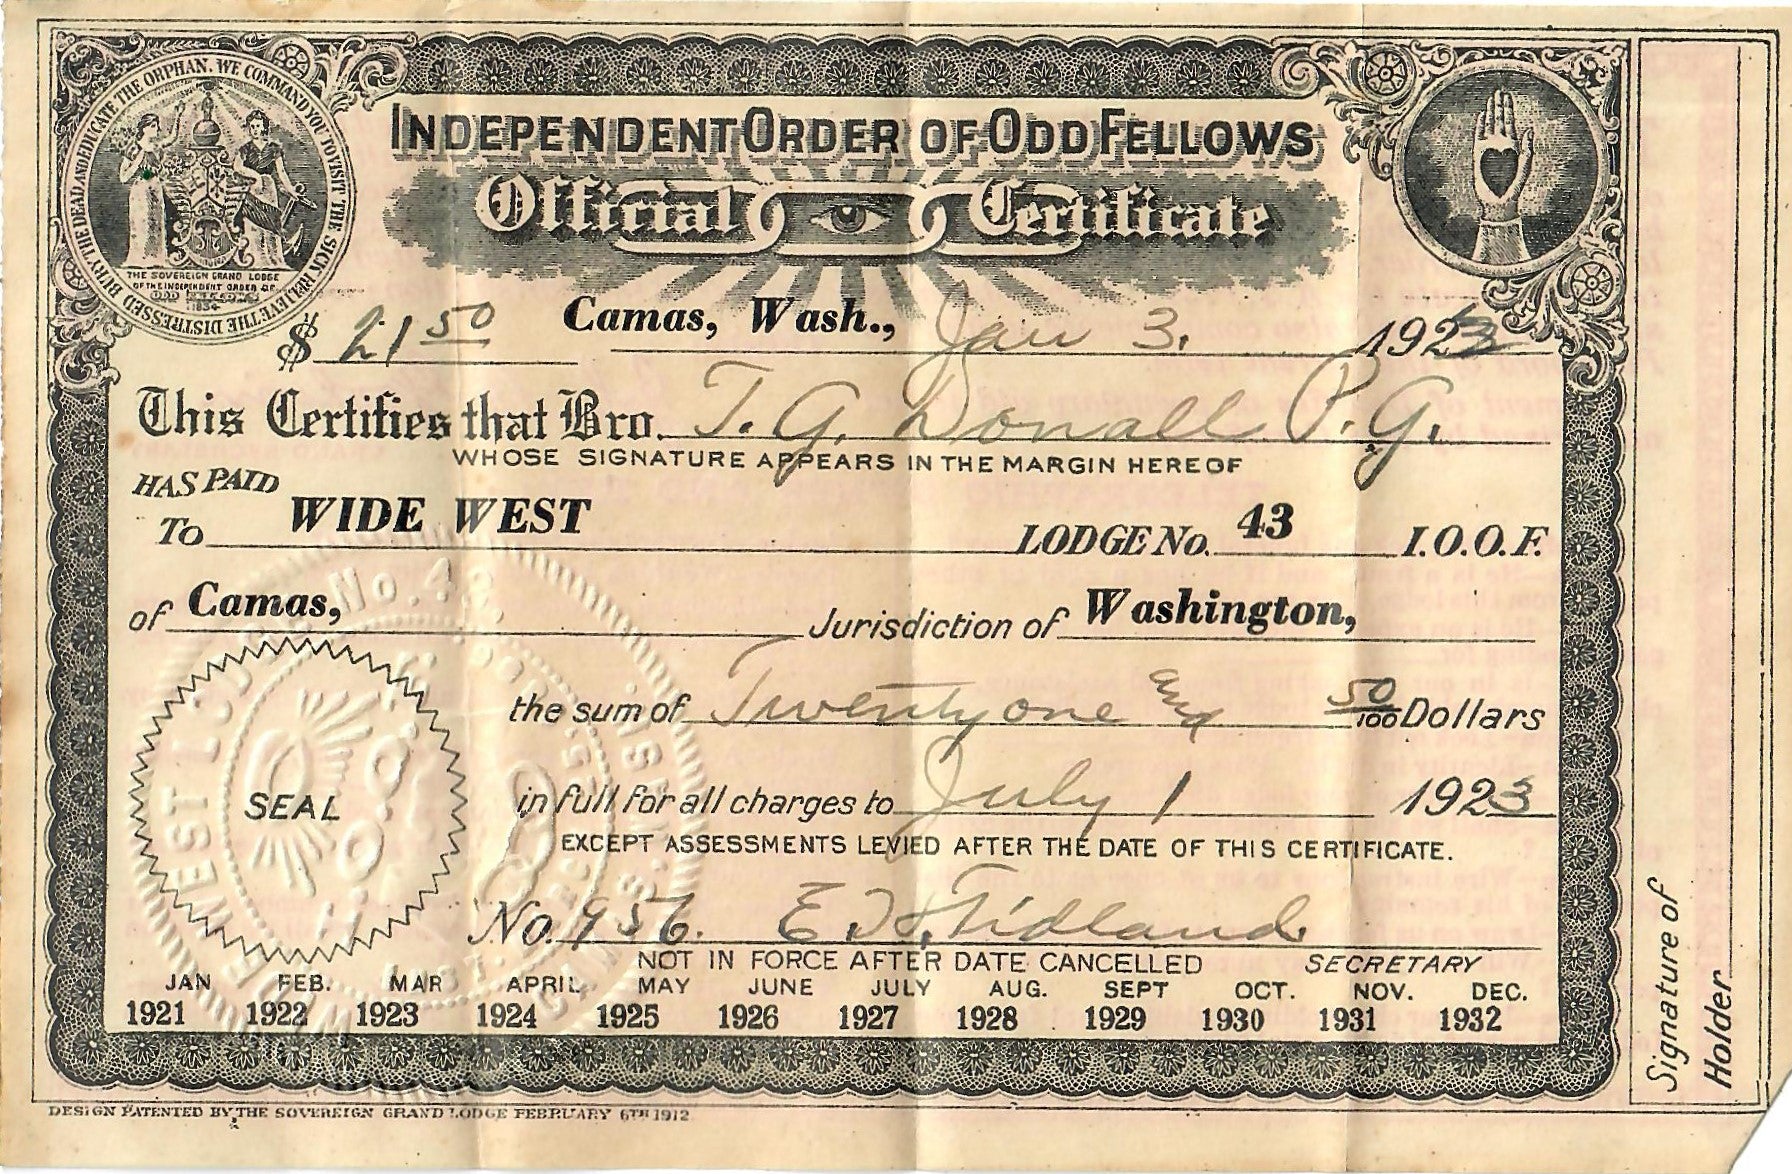 BURY THE DEAD AND EDUCATE THE ORPHAN. WE COMMAND YOU TO VISIT THE SICK RELIEVE THE DISTRESSED
THE SOVEREIGN GRAND LODGE
OF THE INDEPENDENT ORDER OF
ODD FELLOWS
INDEPENDENT ORDER OF ODD FELLOWS
Official Certificate
$ 21 50 Camas, Wash., Jan 3. 1923
This Certifies that Bro. T. G. Donall P.G.
WHOSE SIGNATURE APPEARS IN THE MARGIN HEREOF
HAS PAID
To WIDE WEST LODGE No. 43 I.O.O.F.
of Camas, Jurisdiction of Washington,
the sum of Twenty one and 50/100 Dollars
SEAL
in full for all charges to July 1 1923
EXCEPT ASSESSMENTS LEVIED AFTER THE DATE OF THIS CERTIFICATE.
No. 956. E. H. Fidland
NOT IN FORCE AFTER DATE CANCELLED SECRETARY
JAN FEB. MAR APRIL MAY JUNE JULY AUG. SEPT OCT. NOV. DEC.
1921 1922 1923 1924 1925 1926 1927 1928 1929 1930 1931 1932
DESIGN PATENTED BY THE SOVEREIGN GRAND LODGE FEBRUARY 6TH 1912
Signature of
Holder